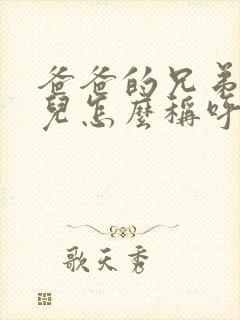 爸爸的兄弟
兒怎麼稱呼
歌天秀